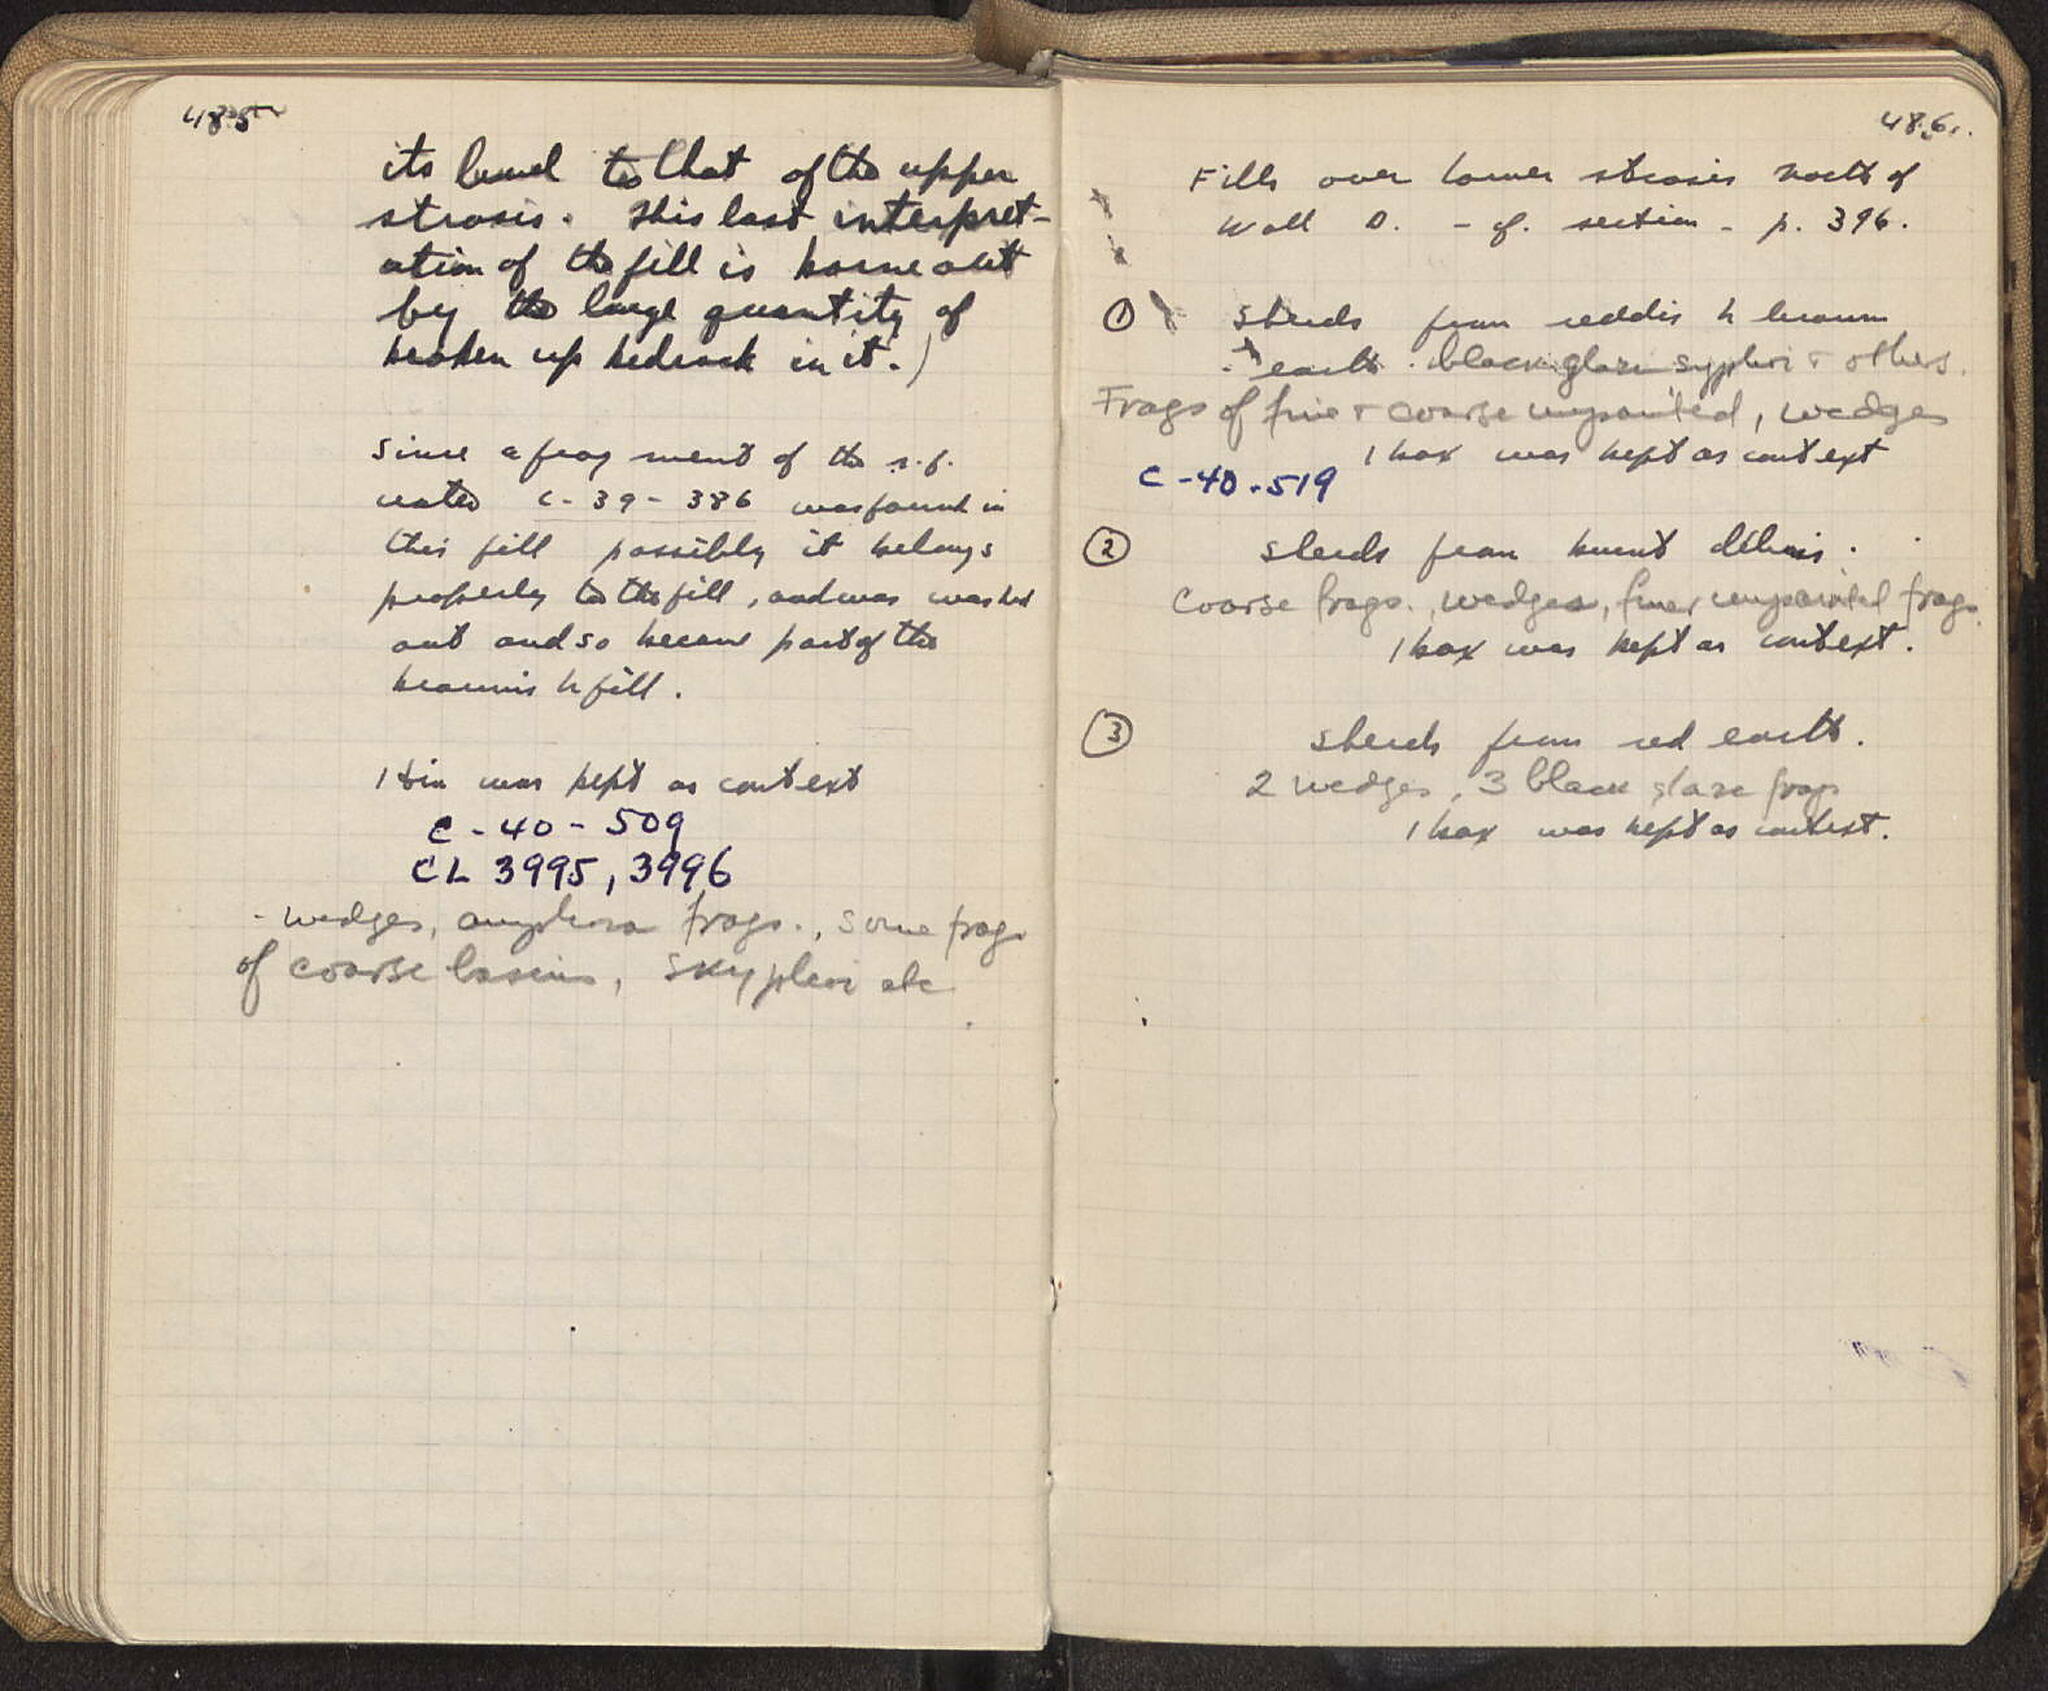 485
its level to that of the upper
strosis. This last interpret-
ation of the fill is borne out
by the large quantity of
broken up bedrock in it.)
Since a fragment of the r.f.
C-39-386 was found in
this fill possibly it belongs
properly to the fill, and was washed
out and so became part of the
brownish fill.
1 tin was kept as context
C-40-509
CL 3995, 3996
- wedges, amphora frags., some frags
of coarse basins, skyphoi etc
486.
Fills over lower strosis north of
Wall D. - cf. section - p. 396.
① sherds from reddish brown
earth. black glaze skyphoi + others.
Frags of fine + coarse unpainted, wedges
1 box was kept as context
C-40-519
② sherds from burnt débris.
Coarse frags., wedges, finer unpainted frags.
1 box was kept as context.
③ sherds from red earth.
2 wedges, 3 black glaze frags
1 box was kept as context.